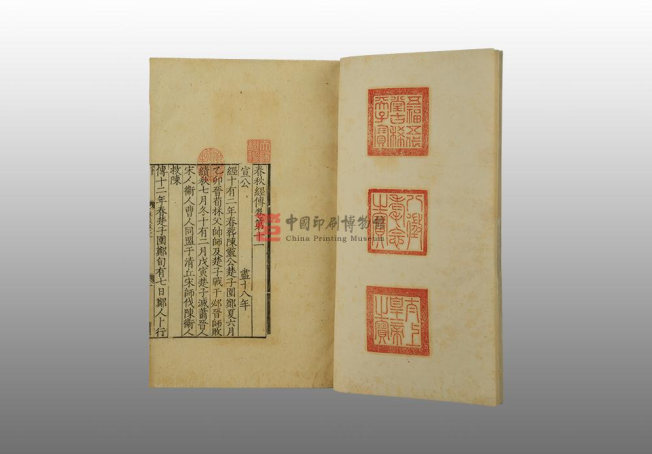 五福五代
堂古稀
天子寶
八徵
耄念
之寶
太上
皇帝
之寶
春秋經傳卷第十二
宣公 盡十八年
經十有二年春葬陳靈公楚子圍鄭夏六月
乙卯晉荀林父帥師及楚子戰于邲晉師敗
績秋七月冬十有二月戊寅楚子滅蕭晉人
宋人衞人曹人同盟于清丘宋師伐陳衞人
救陳
傳十二年春楚子圍鄭旬有七日鄭人卜行
中国印刷博物馆
China Printing Museum